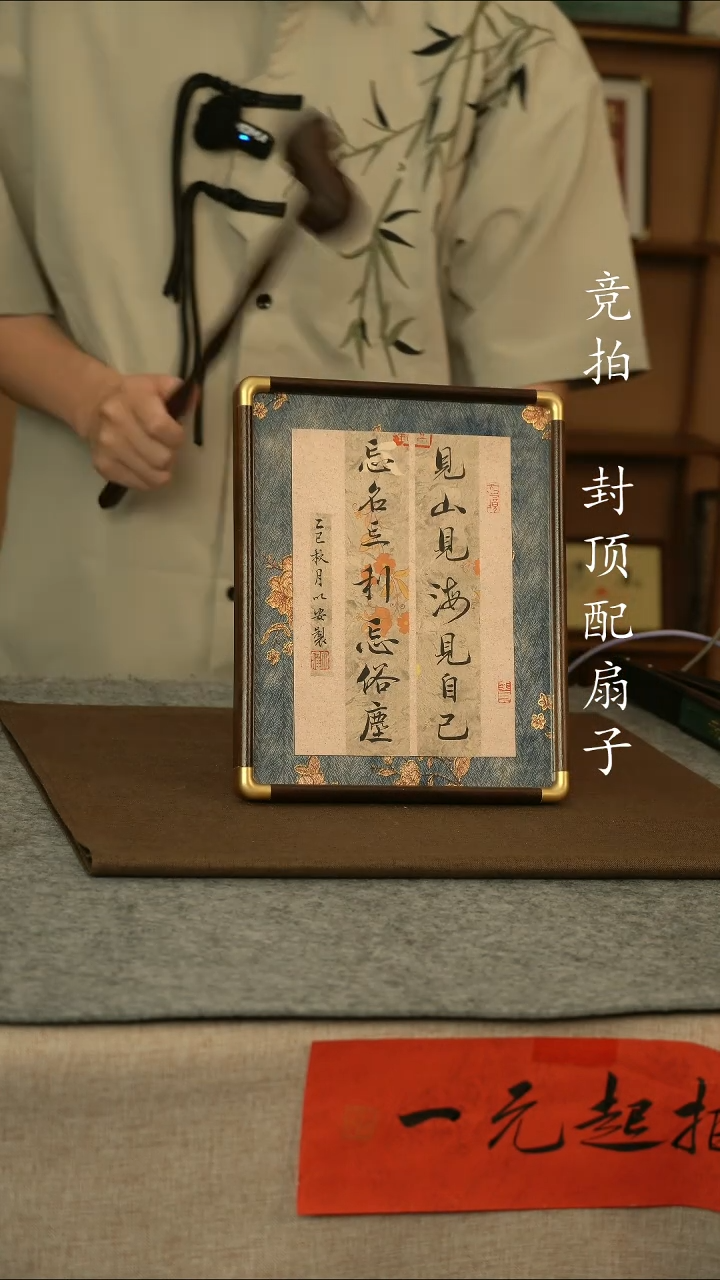 竞拍
封顶配扇子
見山見海見自己
忘名忘利忘俗塵
乙巳秋月以安製
一元起拍